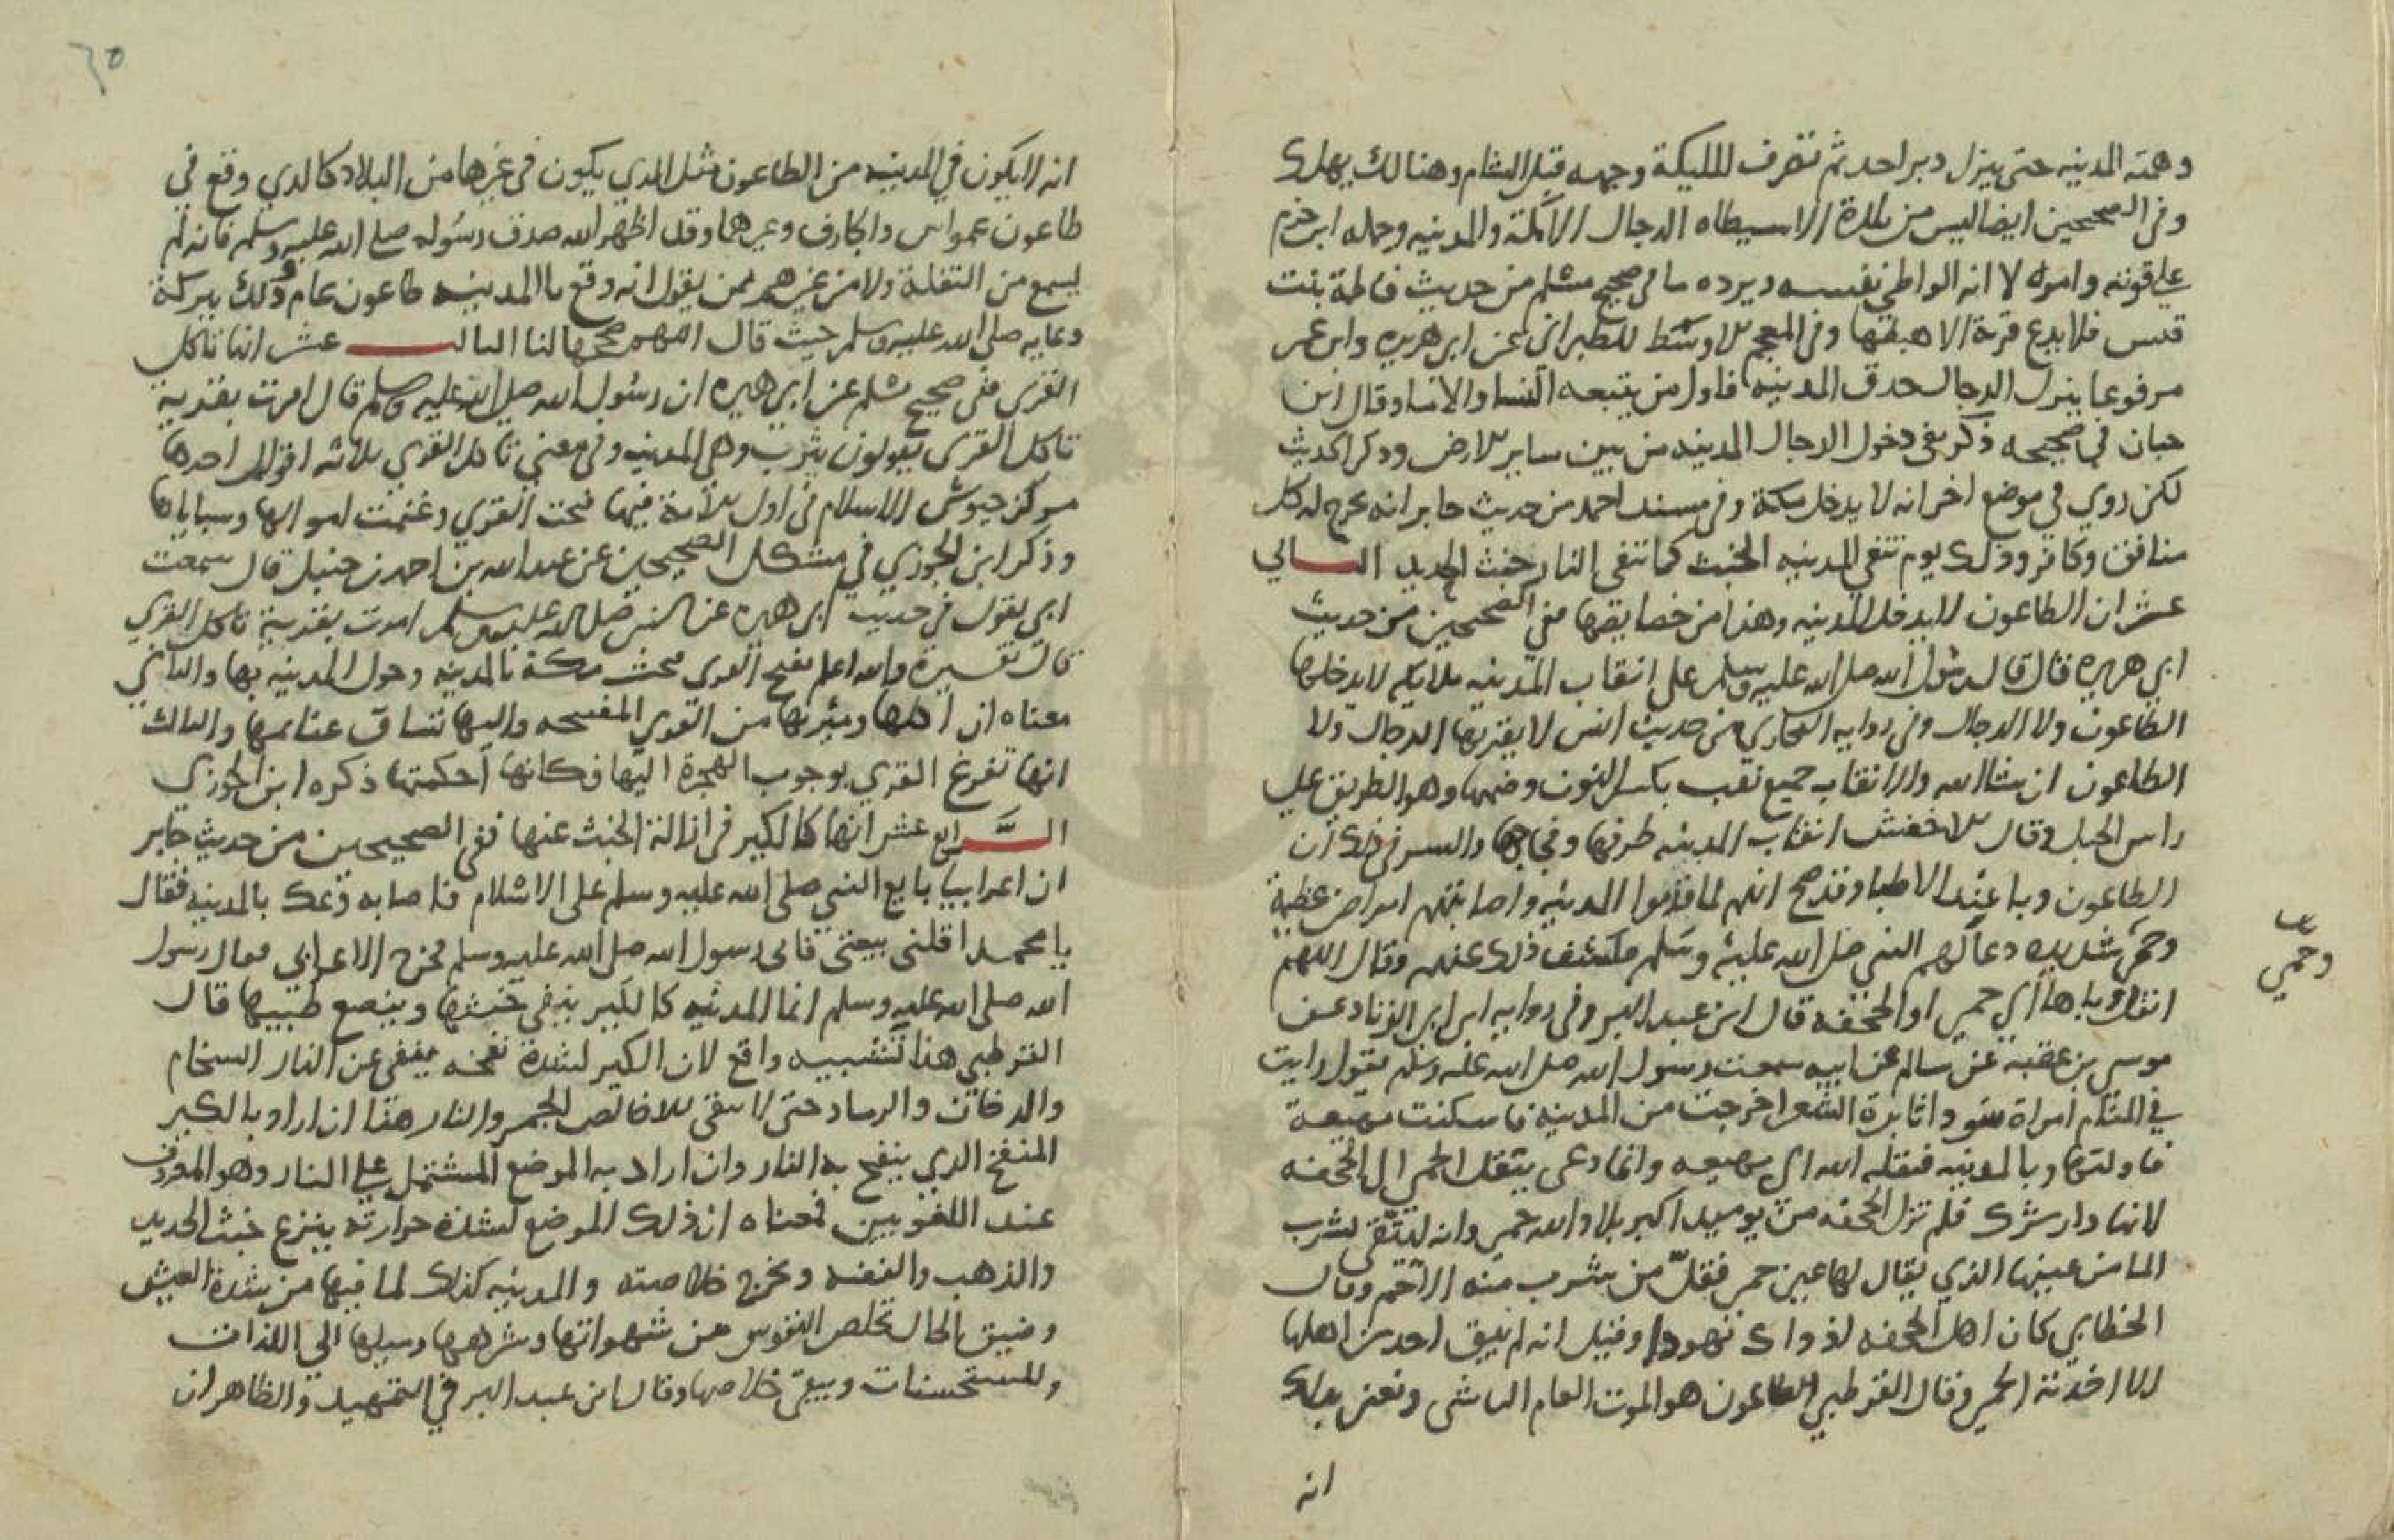 وهمته المدينه حتى ينزل دبر احد ثم تصرف الملليكة وجهه قبل الشام وهنالك يهلك
وفي الصحيحين ايضا ليس من بلدة الا سيطاه الدجال الا مكة والمدينه وحمله ابن حزم
على قوته وامره لا انه الواطي نفسه ويرده ما في صحيح مسلم من حديث فاطمة بنت
قيس فلا يدع قرية الا هبطتها وفي المعجم الاوسط للطبراني عن ابي هريره وابن عمر
مرفوعا ينزل الدجال حدق المدينه فاول من يتبعه النسا والاما وقال ابن
حبان في صحيحه ذكر نفي دخول الدجال المدينه من بين ساير الارض وذكر الحديث
لكن روي في موضع اخر انه لا يدخل مكة وفي مسند احمد من حديث جابر انه يخرج له كل
منافق وكافر وذلك يوم تنفي المدينه الخبث كما تنفي النار خبث الحديد الثاني
عشر ان الطاعون لا يدخل المدينه وهذا من خصايصها ففي الصحيحين من حديث
ابي هريره قال قال رسول الله صلى الله عليه وسلم على انقاب المدينه ملايكه لا يدخلها
الطاعون ولا الدجال وفي روايه البخاري من حديث انس لا يقربها الدجال ولا
الطاعون ان شا الله والانقاب جمع نقب بكسر النون وضمها وهو الطريق على
راس الجبل وقال الاخفش انقاب المدينه طرقها وفجاجها والسر في ذلك ان
الطاعون وبا عند الاطبا وقد صح انهم لما قدموا المدينه واصابتهم امراض عظيمة
وحمى شديده دعا لهم النبي صلى الله عليه وسلم فكشف ذلك عنهم وقال اللهم
وحمي
انقل وباها اي حمى او الجحفه قال ابن عبد البر وفي روايه ابن ابي الزناد عن
موسى بن عقبة عن سالم عن ابيه سمعت رسول الله صلى الله عليه وسلم يقول رايت
في المنام امراة سودا ثايرة الشعر اخرجت من المدينه فاسكنت مهيعة
فاولتها وبا المدينه فنقله الله الى مهيعه وانما دعى بنقل الحمى الى الجحفه
لانها دار شرك فلم تزل الجحفه من يوميذ اكبر بلاد الله حمى وانه ليتقى لشرب
الما من عينها الذي يقال لها عين حمر فقل من يشرب منه الا حم وقال
الخطابي كان اهل الجحفه اذ ذاك يهودا وقيل انه لم يبق احد من اهلها
الا اخذته الحمى وقال القرطبي الطاعون هو الموت العام الفاشي ونعني بذلك
انه
٦٥
انه لا يكون في المدينه من الطاعون مثل الذي يكون في غيرها من البلاد كالذي وقع في
طاعون عمواس والجارف وغيرهما وقد اظهر الله صدق رسوله صلى الله عليه وسلم فانه لم
يسمع من النقلة ولا من غيرهم ممن يقول انه وقع بالمدينه طاعون عام وذلك ببركة
دعايه صلى الله عليه وسلم حيث قال اللهم صححها لنا الثالث عشر انها تاكل
القرى ففي صحيح مسلم عن ابي هريره ان رسول الله صلى الله عليه وسلم قال امرت بقرية
تاكل القرى يقولون يثرب وهي المدينه وفي معني تاكل القرى ثلاثه اقوال احدها
مركز جيوش الاسلام في اول الامة فيها فتحت القرى وغنمت اموالها وسباياها
وذكر ابن الجوزي في مشكل الصحيحين عن عبد الله بن احمد بن حنبل قال سمعت
ابي يقول في حديث ابي هريره عن النبي صلى الله عليه وسلم امرت بقرية تاكل القرى
قال تفسيره والله اعلم بفتح القرى فتحت مكة بالمدينه وحول المدينه بها والثاني
معناه ان اكلها وميرتها من القرى المفتحه واليها تساق غنايمها والثالث
انها تفرغ القرى بوجوب الهجرة اليها فكانها احكمتها ذكره ابن الجوزي
الرابع عشر انها كالكير في ازالة الخبث عنها ففي الصحيحين من حديث جابر
ان اعرابيا بايع النبي صلى الله عليه وسلم على الاسلام فاصابه وعك بالمدينه فقال
يا محمد اقلني بيعتي فابى رسول الله صلى الله عليه وسلم فخرج الاعرابي فقال رسول
الله صلى الله عليه وسلم انما المدينه كالكير ينفي خبثها وينصع طيبها قال
القرطبي هذا تشبيه واقع لان الكير لشدة نفخه ينفي عن النار السخام
والدخان والرماد حتى لا يبقى الا خالص الجمر والنار هذا ان اراد بالكير
المنفخ الذي ينفح به النار وان اراد به الموضع المشتمل على النار وهو المعروف
عند اللغويين فمعناه ان ذلك الموضع لشدة حرارته ينزع خبث الحديد
والذهب والفضه ويخرج خلاصته والمدينه كذلك لما فيها من شدة العيش
وضيق الحال تخلص النفوس من شهواتها وشرهها وميلها الى اللذات
والمستحسنات ويبقى خلاصها وقال ابن عبد البر في التمهيد والظاهر ان